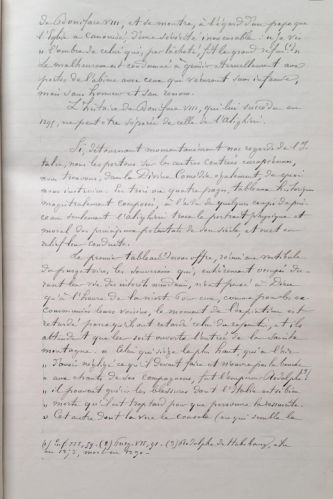 de Boniface VIII, et se montre, à l'égard d'un pape que
l'Eglise a canonisé, d'une sévérité inexorable : « Je vis
« l'ombre de celui qui, par lâcheté, fit le grand refus (1) »
Le malheureux est condamné à gémir éternellement aux
portes de l'abîme avec ceux qui vécurent sans infamie,
mais sans honneur et sans renom.
L'histoire de Boniface VIII, qui lui succéda en
1295, ne peut être séparée de celle de l'Alighieri.
Si, détournant momentanément nos regards de l'I-
talie, nous les portons sur les autres contrées européennes,
nous trouvons, dans la Divine Comédie, également, de quoi
nous instruire. En trois ou quatre pages, tableau historique
magistralement composé, à l'aide de quelques coups de pin-
ceau seulement l'Alighieri trace le portrait physique et
moral des principaux potentats de son siècle, et met en
relief leur conduite.
Le premier tableau nous offre, réunis au vestibule
du purgatoire, les souverains qui, entièrement occupés du-
rant la vie des intérêts mondains, n'ont pensé à Dieu
qu'à l'heure de la mort. Pour eux, comme pour les ex-
communiés leurs voisins, le moment de l'expiation est
retardé parce qu'ils ont retardé celui du repentir, et ils
attendent que leur soit ouverte l'entrée de la Sainte
montagne. « Celui qui siège le plus haut, qui a l'air
« d'avoir négligé ce qu'il devait faire et ne ouvre pas la bouche
« aux chants de ses compagnons, fut l'empereur Rodolphe (3)
« Il pouvait guérir les blessures dont l'Italie est si bien
« morte qu'il est trop tard pour que personne la ressuscite.
« Cet autre dont la vue le console (ou qui semble le
(1) Inf. III, 59. - (2) Purg. VII, 91. - (3) Rodolphe de Habsbourg, élu
en 1273, mort en 1290 -